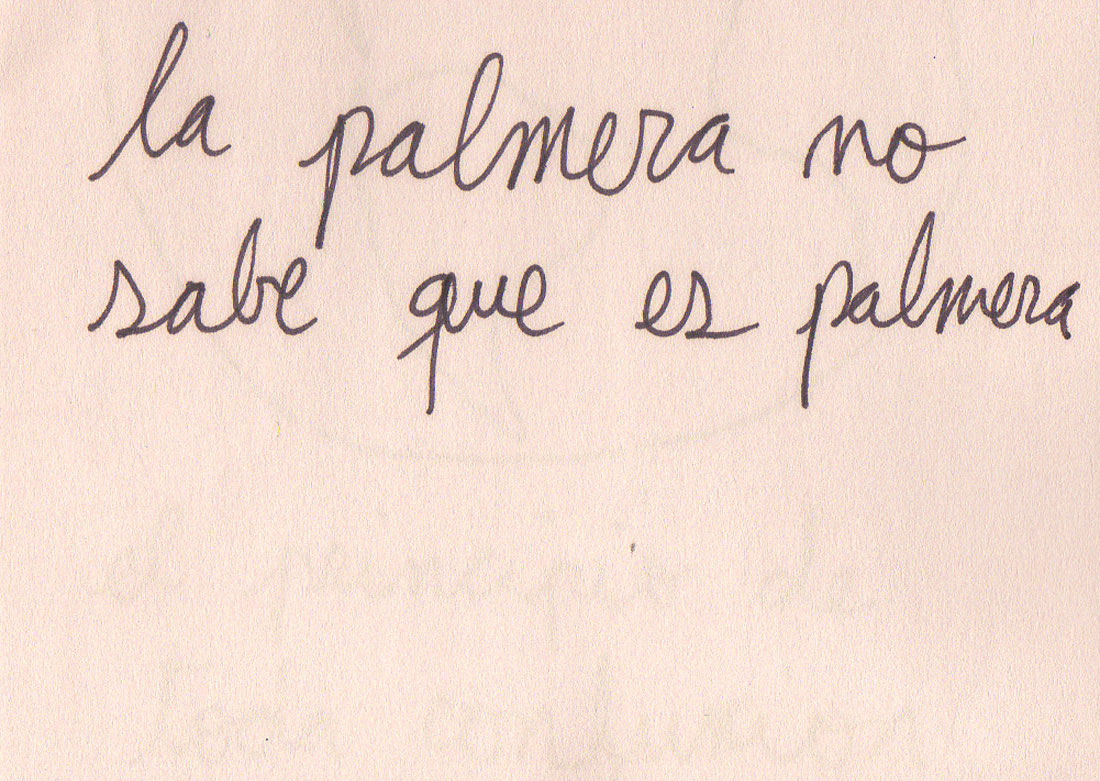 la palmera no
sabe que es palmera